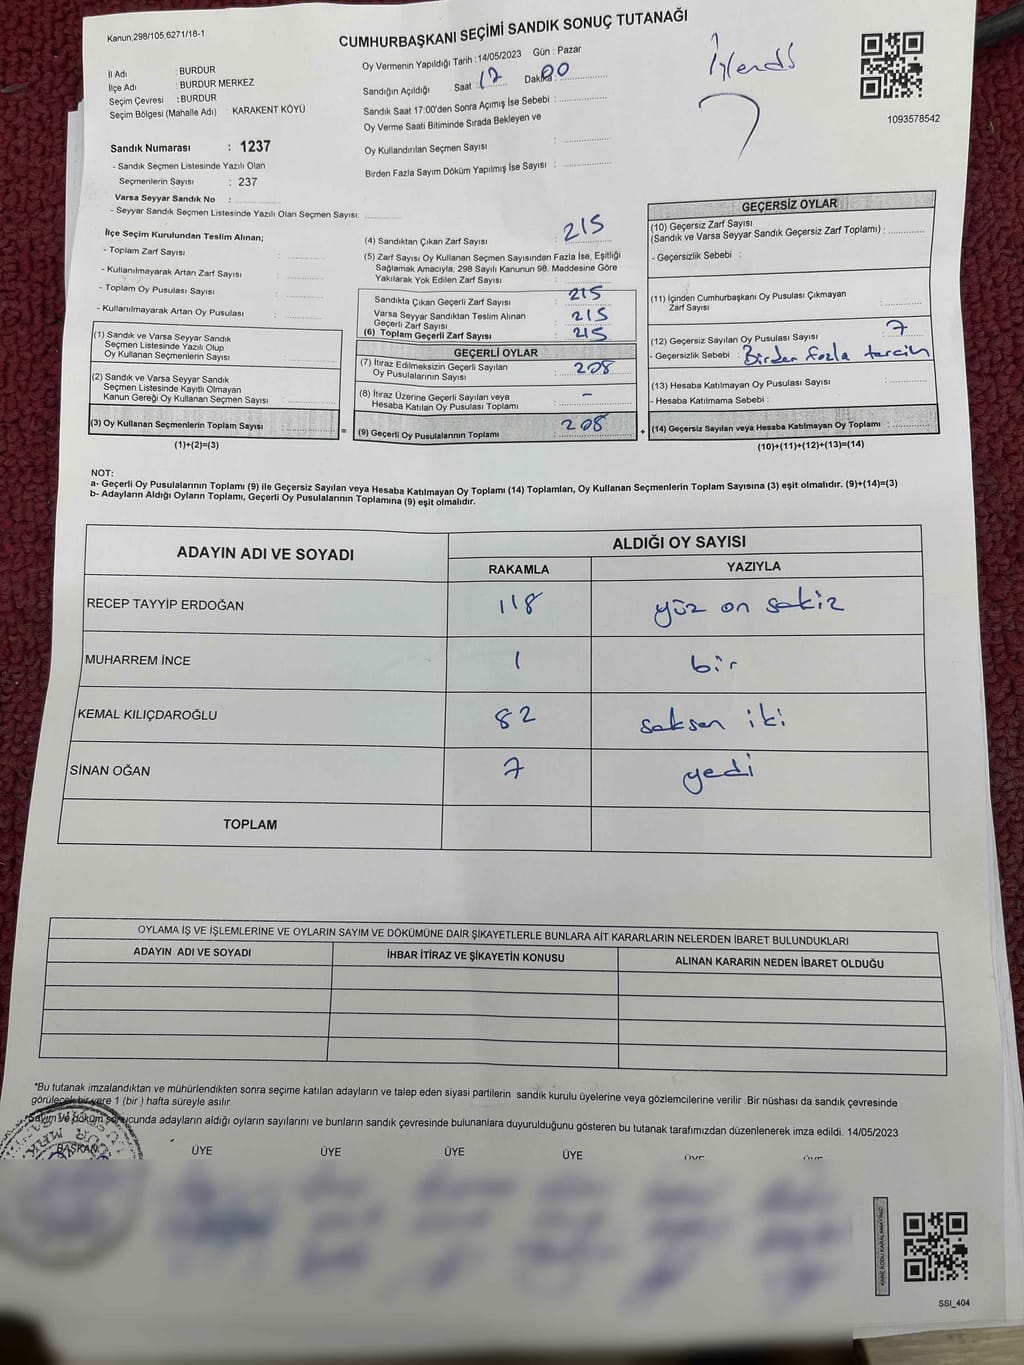 Kanun,298/105,6271/18-1
CUMHURBAŞKANI SEÇİMİ SANDIK SONUÇ TUTANAĞI
İşlendi
1093578542
İl Adı : BURDUR
İlçe Adı : BURDUR MERKEZ
Seçim Çevresi : BURDUR
Seçim Bölgesi (Mahalle Adı) : KARAKENT KÖYÜ
Sandık Numarası : 1237
- Sandık Seçmen Listesinde Yazılı Olan
Seçmenlerin Sayısı : 237
Varsa Seyyar Sandık No :
- Seyyar Sandık Seçmen Listesinde Yazılı Olan Seçmen Sayısı:
Oy Vermenin Yapıldığı Tarih :14/05/2023 Gün : Pazar
Sandığın Açıldığı Saat 17 Dakika 00
Sandık Saat 17:00'den Sonra Açımış İse Sebebi :
Oy Verme Saati Bitiminde Sırada Bekleyen ve
Oy Kullandırılan Seçmen Sayısı :
Birden Fazla Sayım Döküm Yapılmış İse Sayısı :
İlçe Seçim Kurulundan Teslim Alınan;
- Toplam Zarf Sayısı :
- Kullanılmayarak Artan Zarf Sayısı :
- Toplam Oy Pusulası Sayısı :
- Kullanılmayarak Artan Oy Pusulası :
(1) Sandık ve Varsa Seyyar Sandık
Seçmen Listesinde Yazılı Olup
Oy Kullanan Seçmenlerin Sayısı :
(2) Sandık ve Varsa Seyyar Sandık
Seçmen Listesinde Kayıtlı Olmayan
Kanun Gereği Oy Kullanan Seçmen Sayısı :
(3) Oy Kullanan Seçmenlerin Toplam Sayısı :
(1)+(2)=(3)
=
(4) Sandıktan Çıkan Zarf Sayısı : 215
(5) Zarf Sayısı Oy Kullanan Seçmen Sayısından Fazla İse, Eşitliği
Sağlamak Amacıyla; 298 Sayılı Kanunun 98. Maddesine Göre
Yakılarak Yok Edilen Zarf Sayısı :
Sandıkta Çıkan Geçerli Zarf Sayısı : 215
Varsa Seyyar Sandıktan Teslim Alınan
Geçerli Zarf Sayısı : 215
(6) Toplam Geçerli Zarf Sayısı : 215
GEÇERLİ OYLAR
(7) İtiraz Edilmeksizin Geçerli Sayılan
Oy Pusulalarının Sayısı : 208
(8) İtiraz Üzerine Geçerli Sayılan veya
Hesaba Katılan Oy Pusulası Toplamı : -
(9) Geçerli Oy Pusulalarının Toplamı : 208
+
GEÇERSİZ OYLAR
(10) Geçersiz Zarf Sayısı
(Sandık ve Varsa Seyyar Sandık Geçersiz Zarf Toplamı) :
- Geçersizlik Sebebi :
(11) İçinden Cumhurbaşkanı Oy Pusulası Çıkmayan
Zarf Sayısı :
(12) Geçersiz Sayılan Oy Pusulası Sayısı : 7
- Geçersizlik Sebebi : Birden fazla tercih
(13) Hesaba Katılmayan Oy Pusulası Sayısı :
- Hesaba Katılmama Sebebi :
(14) Geçersiz Sayılan veya Hesaba Katılmayan Oy Toplamı :
(10)+(11)+(12)+(13)=(14)
NOT:
a- Geçerli Oy Pusulalarının Toplamı (9) ile Geçersiz Sayılan veya Hesaba Katılmayan Oy Toplamı (14) Toplamları, Oy Kullanan Seçmenlerin Toplam Sayısına (3) eşit olmalıdır. (9)+(14)=(3)
b- Adayların Aldığı Oyların Toplamı, Geçerli Oy Pusulalarının Toplamına (9) eşit olmalıdır.
ADAYIN ADI VE SOYADI ALDIĞI OY SAYISI
RAKAMLA YAZIYLA
RECEP TAYYİP ERDOĞAN 118 yüz on sekiz
MUHARREM İNCE 1 bir
KEMAL KILIÇDAROĞLU 82 seksen iki
SİNAN OĞAN 7 yedi
TOPLAM
OYLAMA İŞ VE İŞLEMLERİNE VE OYLARIN SAYIM VE DÖKÜMÜNE DAİR ŞİKAYETLERLE BUNLARA AİT KARARLARIN NELERDEN İBARET BULUNDUKLARI
ADAYIN ADI VE SOYADI İHBAR İTİRAZ VE ŞİKAYETİN KONUSU ALINAN KARARIN NEDEN İBARET OLDUĞU
*Bu tutanak imzalandıktan ve mühürlendikten sonra seçime katılan adayların ve talep eden siyasi partilerin sandık kurulu üyelerine veya gözlemcilerine verilir .Bir nüshası da sandık çevresinde
görülecek bir yere 1 (bir ) hafta süreyle asılır.
*Sayım ve döküm sonucunda adayların aldığı oyların sayılarını ve bunların sandık çevresinde bulunanlara duyurulduğunu gösteren bu tutanak tarafımızdan düzenlenerek imza edildi. 14/05/2023
BAŞKAN ÜYE ÜYE ÜYE ÜYE ÜYE ÜYE
KARE KODU KARALAMAYINIZ
SSI_404